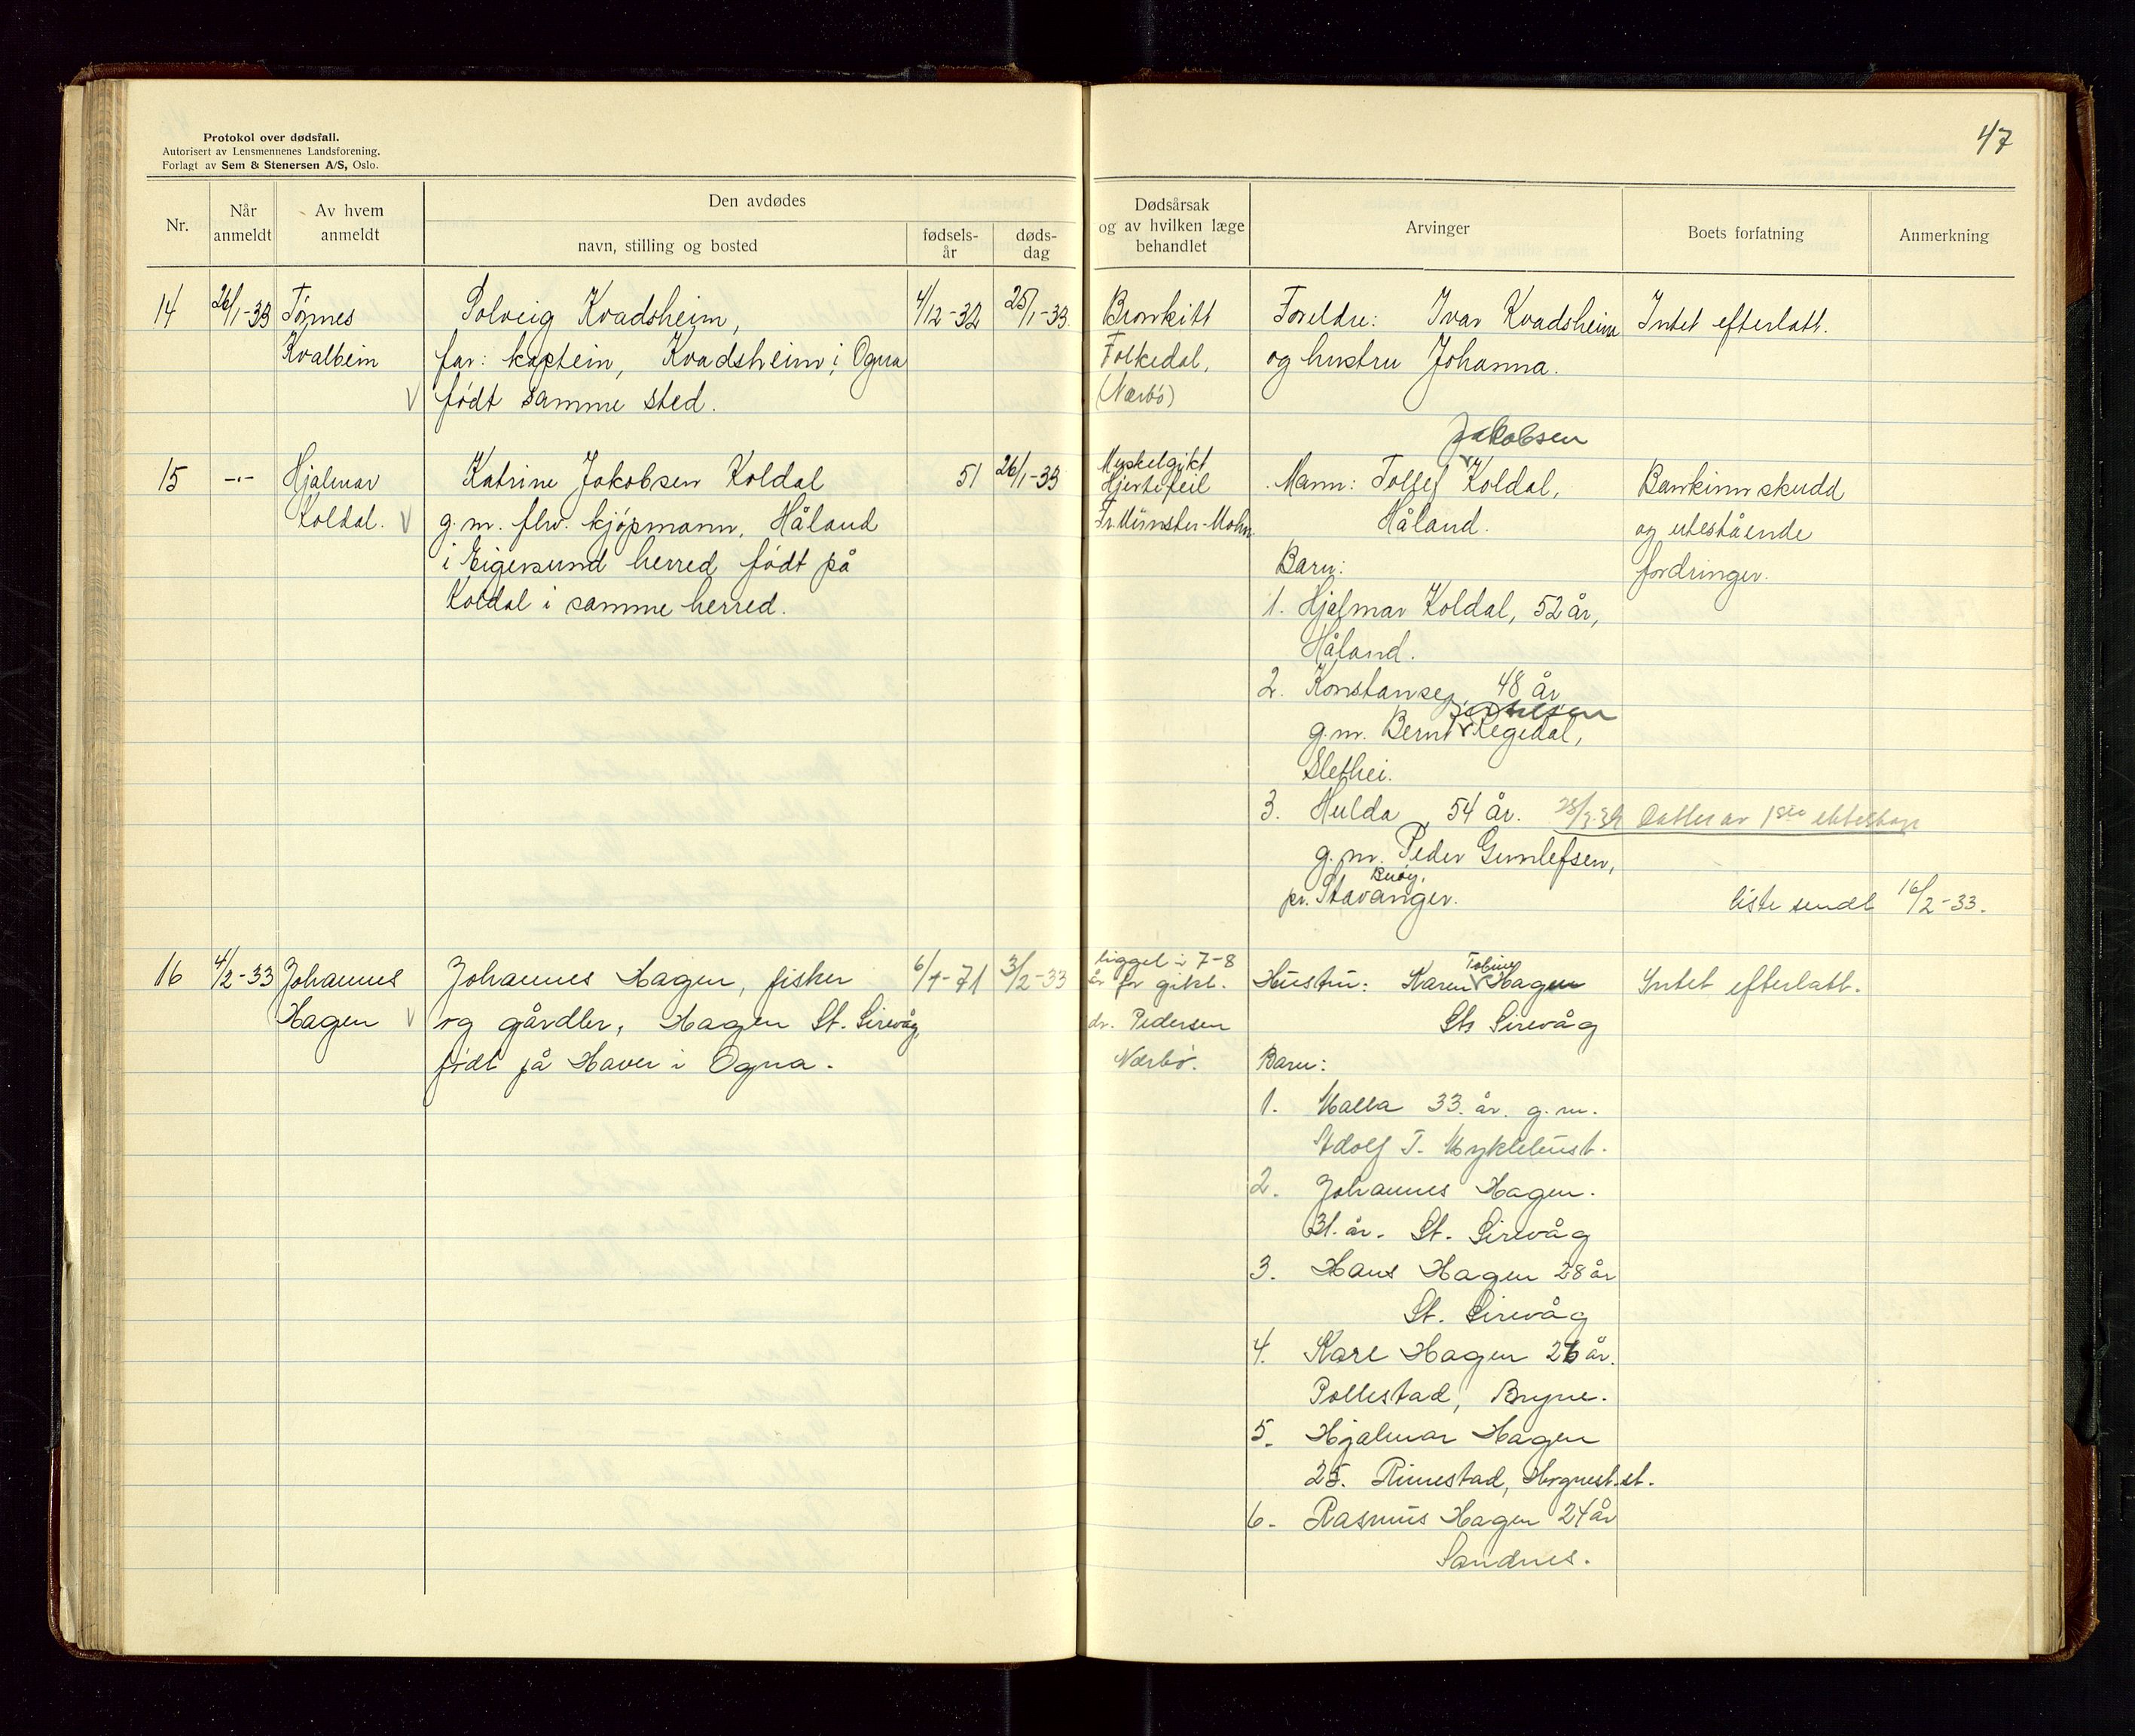 47
Protokol over dødsfall.
Autorisert av Lensmennenes Landsforening.
Forlagt av Sem & Stenersen A/S, Oslo.
Nr.
Når anmeldt
Av hvem anmeldt
Den avdødes
navn, stilling og bosted
fødsels-år
døds-dag
Dødsårsak
og av hvilken læge
behandlet
Arvinger
Boets forfatning
Anmerkning
14
26/1-33
Tønnes
Kvalbein
Solveig Kvadsheim,
far: kaptein, Kvadsheim i Ogna
født samme sted.
4/12-32
25/1-33.
Bronkitt
Folkedal,
(Nærbø)
Foreldre: Ivar Kvadsheim
og hustru Johanna.
Intet efterlatt.
15
-"-
Hjalmar
Koldal.
Katrine Jakobsen Koldal
g.m. fhv. kjøpmann, Håland
i Eigersund herred, født på
Koldal i samme herred.
51
26/1-33
Muskelgikt
Hjertefeil
Fr. Münster-Mohn
Jakobsen
Mann: Tollef Koldal,
Håland.
Barn:
1. Hjalmar Koldal, 52 år,
Håland.
2. Konstanse, 48 år
Bertelsen
g.m. Bernt Regedal,
Slethei.
3. Hulda, 54 år. Datter av 1ste ekteskap
g.m. Peder Gunlefsen,
Buøy,
pr. Stavanger.
Bankinnskudd
og utestående
fordringer.
liste sendt 16/2-33.
16
4/2-33
Johannes
Hagen
Johannes Hagen, fisker
og gårdbr, Hagen St. Sirevåg,
født på Haver i Ogna.
6/1-71
3/2-33
ligget i 7-8
år for gikt.
dr. Pedersen
Nærbø.
Tobine
Hustru: Karen Hagen
St. Sirevåg
Barn:
1. Malla 33. år. g.m.
Adolf T. Myklebust.
2. Johannes Hagen.
31. år. St. Sirevåg
3. Hans Hagen 28 år
St. Sirevåg
4. Kare Hagen 26 år.
Pollestad, Bryne.
5. Hjalmar Hagen
25. Rimestad, Hognest. st.
6. Rasmus Hagen 24 år
Sandnes.
Intet efterlatt.